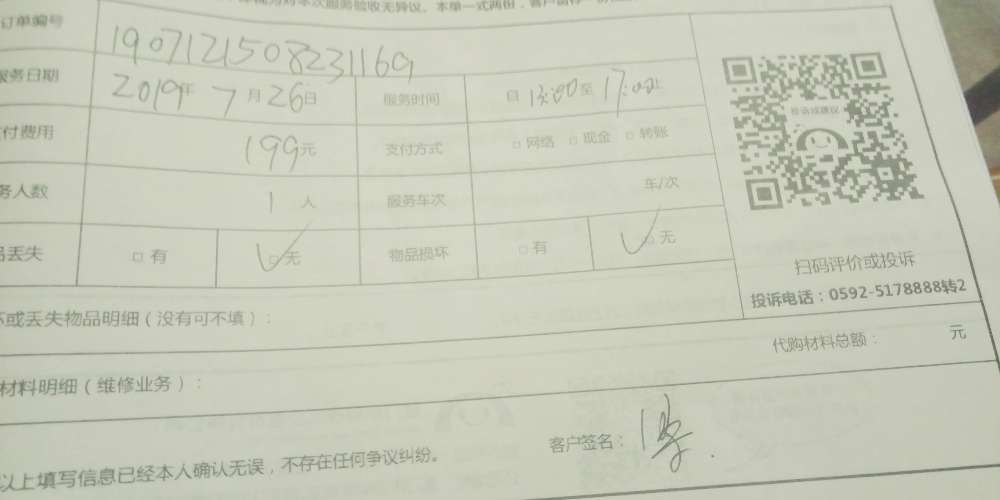 对本次服务验收无异议。本单一式两份，客户留存一份
订单编号 1907121508231169
服务日期 2019年 7月26日 服务时间 自 13:00至17:00止
付费用 199元 支付方式 □ 网络 □ 现金 □ 转账
务人数 1 人 服务车次 车/次
品丢失 □ 有 □ 无 物品损坏 □ 有 □ 无
投诉或建议
扫码评价或投诉
投诉电话：0592-5178888转2
坏或丢失物品明细（没有可不填）：
代购材料总额： 元
材料明细（维修业务）：
客户签名：
以上填写信息已经本人确认无误，不存在任何争议纠纷。